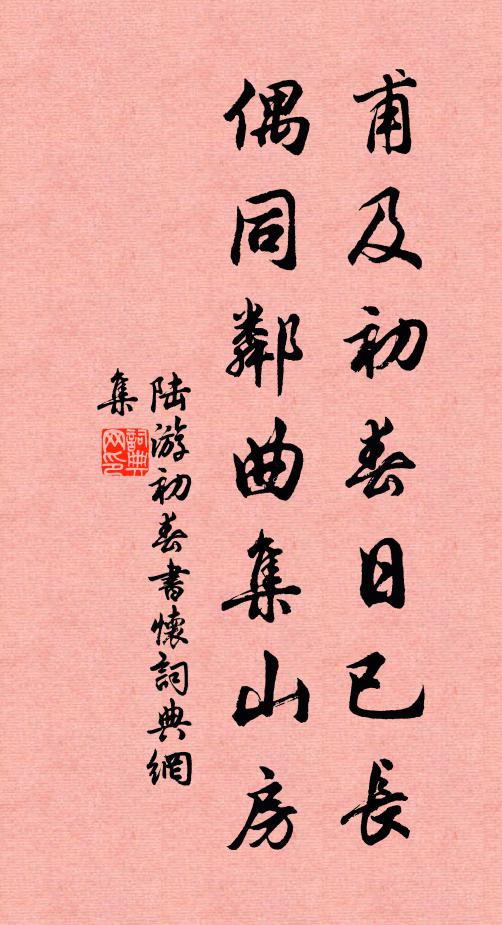 甫及初春日已長
偶同鄰曲集山房
陆游初春書懷詞典網
集
詞典
网印